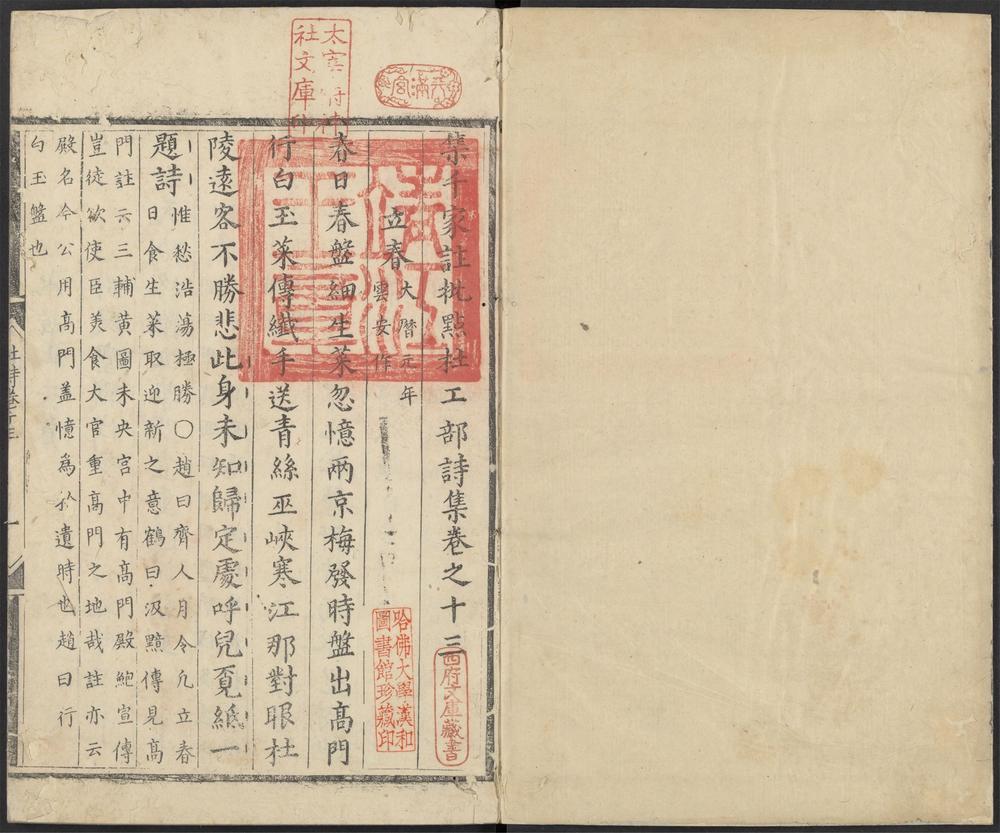 集千家註批點杜工部詩集卷之十三
立春
大曆元年
雲安作
春日春盤細生菜忽憶兩京梅發時盤出高門
行白玉菜傳纖手送青絲巫峽寒江那對眼杜
陵遠客不勝悲此身未知歸定處呼兒覓紙一
題詩
惟愁浩蕩極勝〇趙曰齊人月令凢立春
日食生菜取迎新之意鶴曰汲黯傳見高
門註云三輔黃圖未央宫中有高門殿鮑宣傳
豈徒欲使臣美食大官重高門之地哉註亦云
殿名今公用高門盖憶為於遺時也趙曰行
白玉盤也
杜詩卷十三
一
天滿宮
社文庫
西府文庫藏書
哈佛大學漢和
圖書館珍藏印